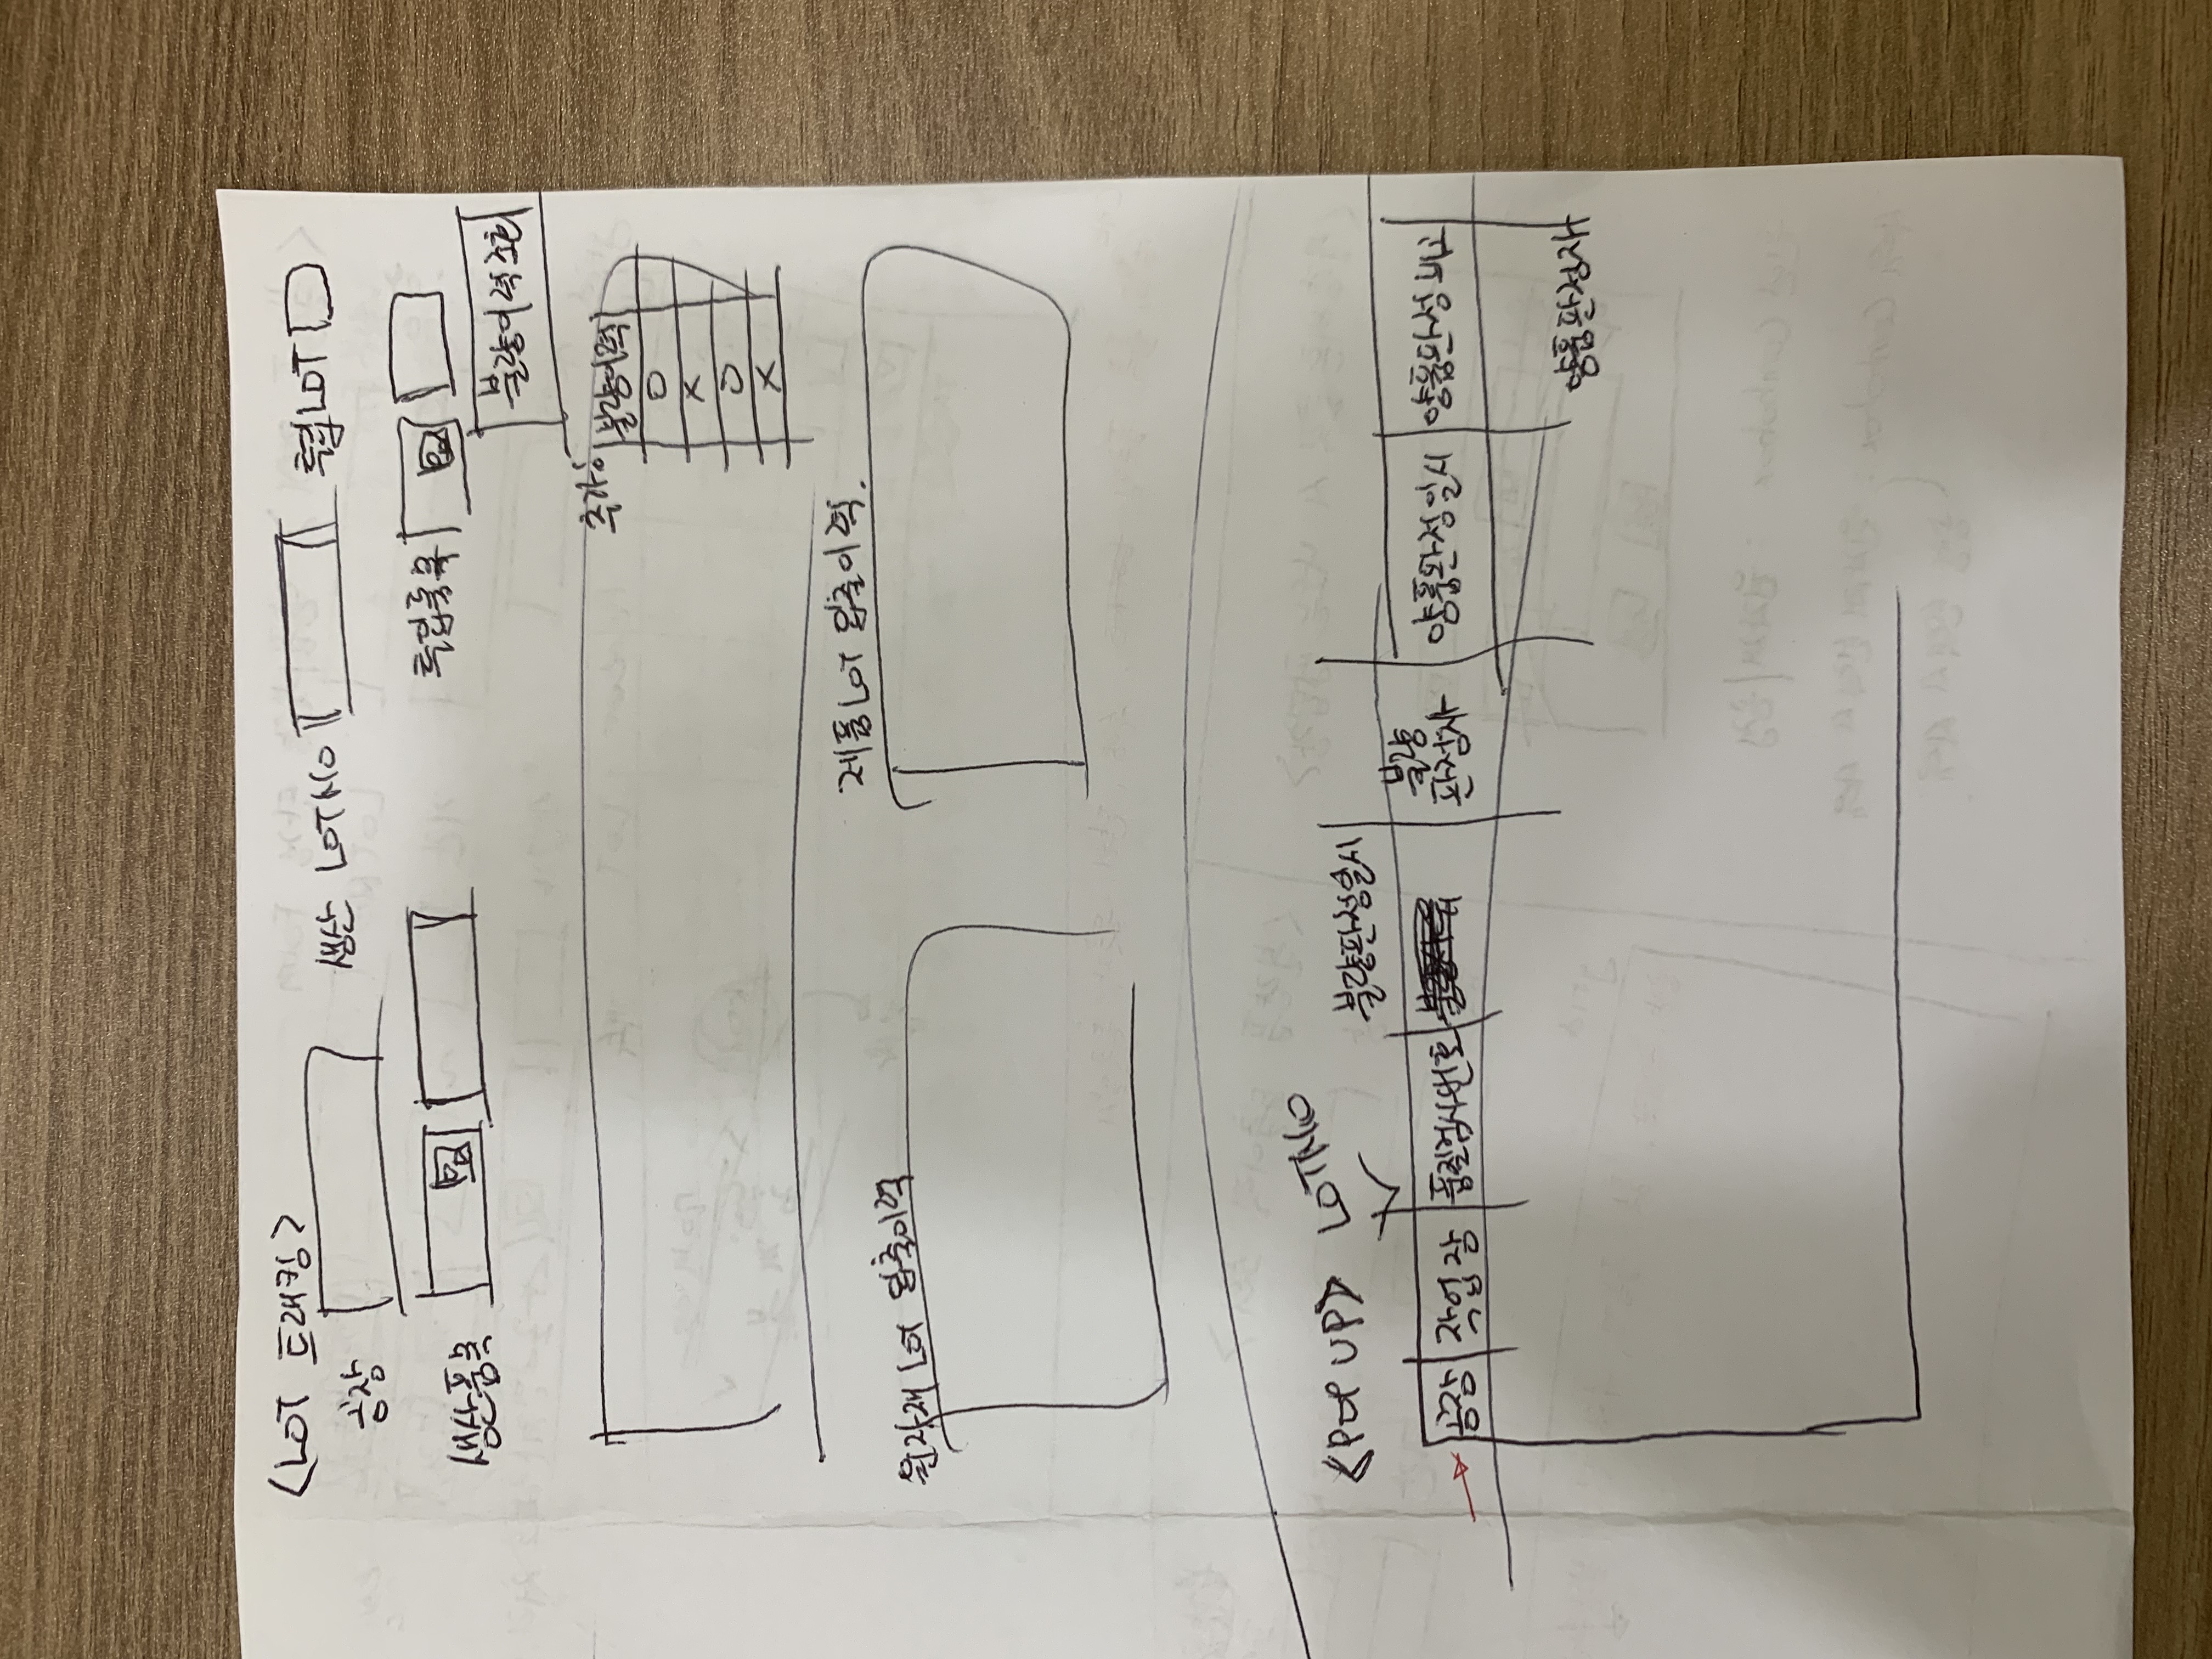 <LOT 트래킹>
공장
생산 LOTNO
투입LOT
생산품목
투입품목
불량이력조회
추가
불량이력
O
X
O
X
원자재 LOT 입출이력
제품LOT 입출이력.
<POP UP> LOTNO
불량판정일시
공장 작업장 품질검사번호
불량
판정자
양품판정일시 양품판정 비고
양품판정자